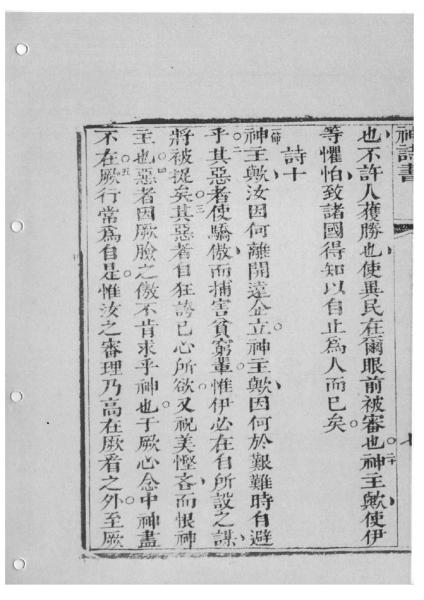 神詩書
也不許人獲勝也使異民在爾眼前被審也二十神主歟使伊
等懼怕致諸國得知以自止為人而已矣
詩十
節一神主歟汝因何離開遠企立神主歟因何於艱難時自避
乎二其惡者使驕傲而捕害貧窮輩惟伊必在自所設之謀
將被捉矣三其惡者自狂誇己心所欲又祝美慳吝而恨神
主也四惡者因厥臉之傲不肯求乎神也于厥心念中神盡
不在五厥行常為自是惟汝之審理乃高在厥看之外至厥